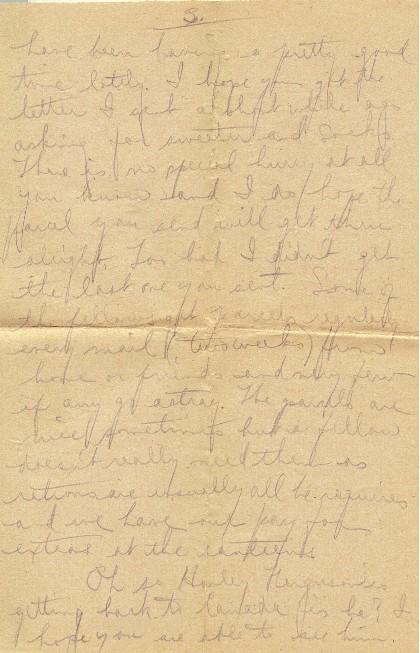 3.
have been having a pretty good
time lately. I hope you got the
letter I sent a short while ago
asking for sweater and socks.
There is no special hurry at all
you know and I do hope the
parcel you send will get here
alright. Too bad I didn't get
the last one you sent. Some of
the fellows get parcels regularly
every mail (two weeks) from
home or friends and very few
if any go astray. The parcels are
nice sometimes but a fellow
doesn't really need them as
rations are usually all he requires
and we have our pay for
extras at the canteens.
Oh so Harley Ferguson is
getting back to Canada is he? I
hope you are able to see him.